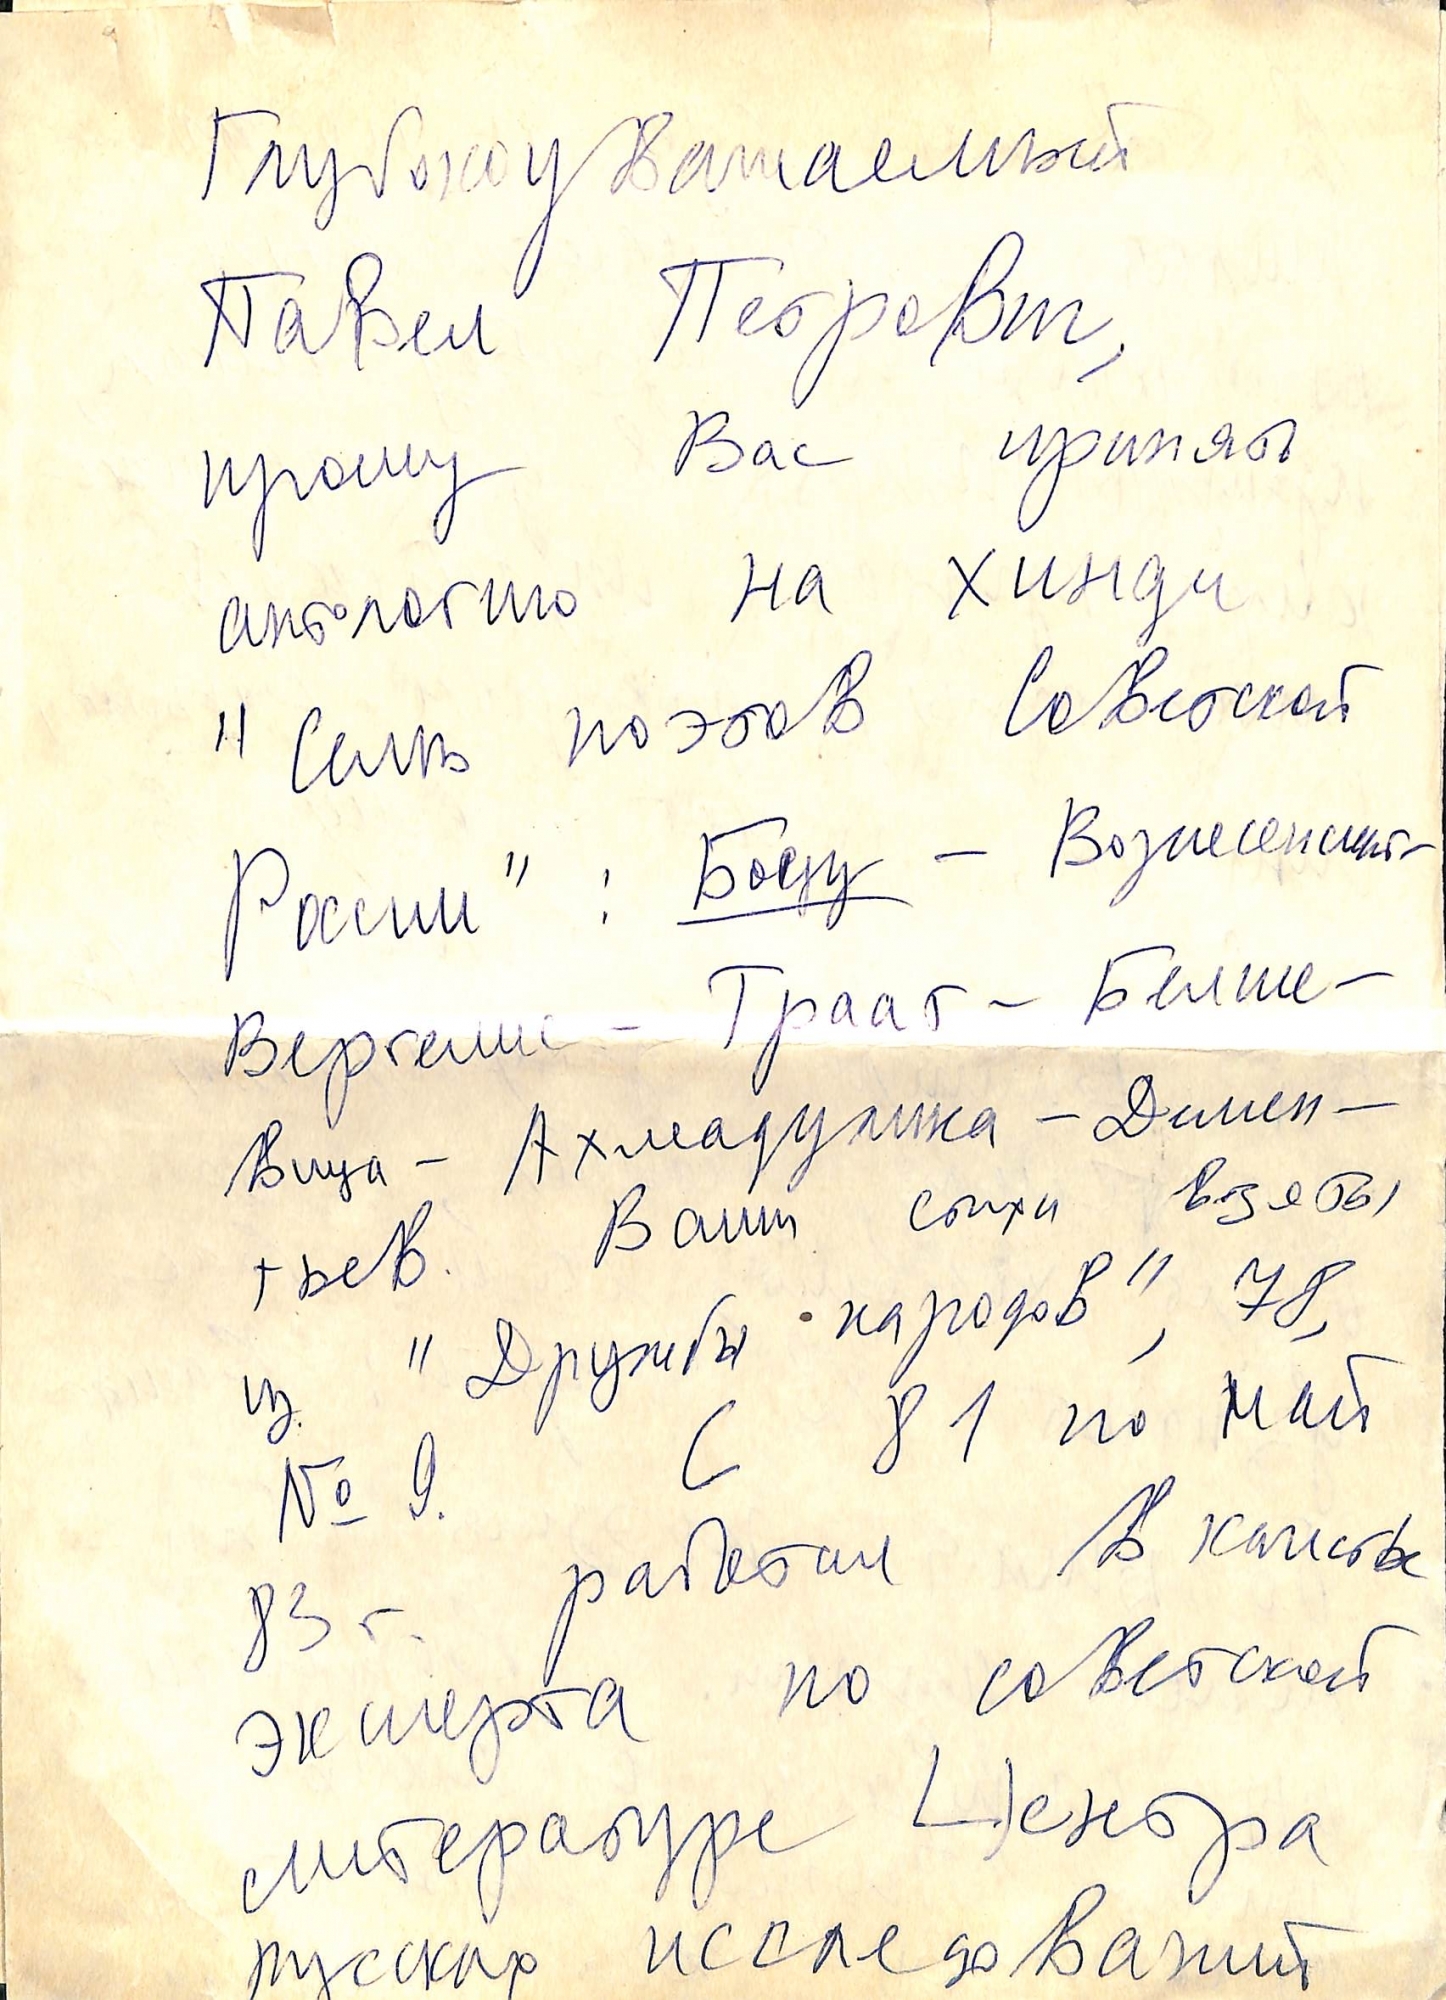 Глубокоуважаемый
Павел Петрович,
прошу Вас принять
антологию на хинди
"Семь поэтов Советской
России" : Боцу – Вознесенский –
Вергелис – Траат – Белше-
вица – Ахмадулина – Демен-
тьев. Ваши стихи взяты
из "Дружбы народов", 78,
№ 9. С 81 по май
83 г. работал в качестве
эксперта по советской
литературе Центра
русских исследований